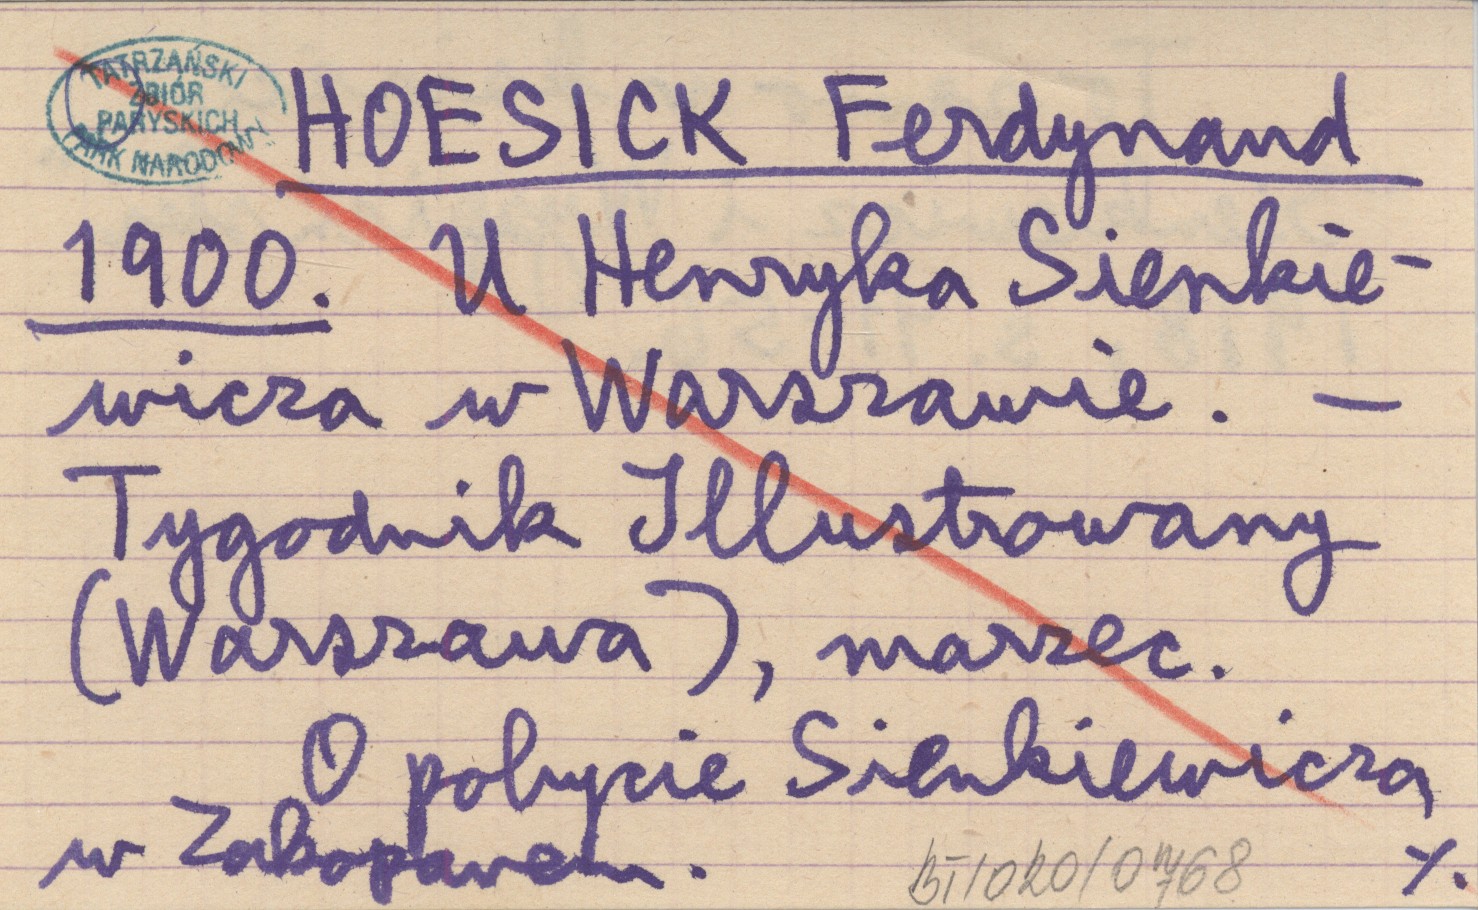 TATRZAŃSKI
ZBIÓR
PARYSKICH
PARK NARODOWY
HOESICK Ferdynand
1900. U Henryka Sienkie-
wicza w Warszawie. —
Tygodnik Illustrowany
(Warszawa), marzec.
O pobycie Sienkiewicza
w Zakopanem.
./.